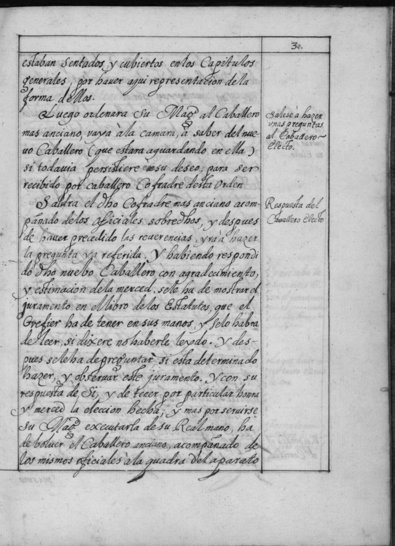 30.
estaban sentados y cubiertos en los Capitulos
generales, por hauer aqui representacion de la
forma dellos.
Luego ordenara Su Magd. al Caballero
mas anciano, vaya a la camara, à saber del nue
uo Caballero (que estara aguardando en ella)
si todauia persiuiere en su deseo, para ser
recibido por caballero Cofradre desta Orden
Saldra el dho Cofradre mas anciano acom-
pañado de los oficiales sobredhos, y despues
de hauer precedido las reuerencias, yra à hazer
la pregunta ya referida, y habiendo respondi
do dho nuebo Caballero con agradecimiento,
y estimacion de la merced, sele ha de mostrar el
juramento en el libro de los Estatutos, que el
Grefier ha de tener en sus manos, y sele habra
de leer, si dixere no haberle leydo. Y des-
pues sele ha de preguntar si esta determinado
hazer, y observar este juramento. Y con su
respuesta de Si, y de tener por particular honra
y merced la eleccion hecha, y mas por seruirse
su Magd. executarla de su Real mano, ha
de boluer el Caballero anciano, acompañado de
los mismos oficiales à la quadra del aparato
Salese à hazer
unas preguntas
al Caballero
Electo.
Respuesta del
Cavallero electo